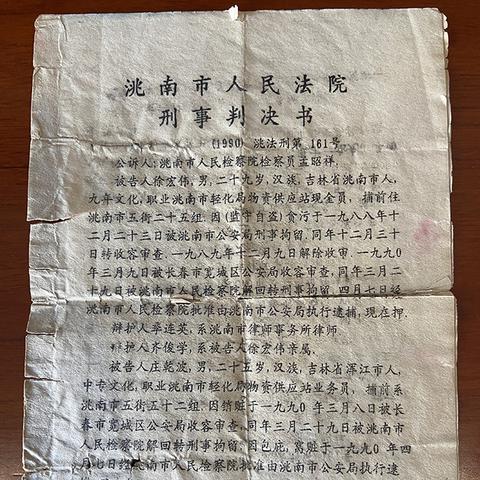 洮南市人民法院
刑事判决书
(1990) 洮法刑第 161号
公诉人:洮南市人民检察院检察员孟昭祥,
被告人徐宏伟,男,二十九岁,汉族,吉林省洮南市人,
九年文化,职业洮南市轻化局物资供应站现金员,捕前住
洮南市五街二十五组.因(监守自盗)贪污于一九八八年十
二月二十三日被洮南市公安局刑事拘留.同年十二月三十
日转收容审查.一九八九年十二月九日解除收审.一九九0
年三月九日被长春市宽城区公安局收容审查,同年三月二
十九日被洮南市人民检察院解回转刑事拘留.四月七日经
洮南市人民检察院批准由洮南市公安局执行逮捕,现在押.
辩护人毕连英,系洮南市律师事务所律师
辩护人齐俊学,系被告人徐宏伟亲属,
被告人庄乾波,男,二十五岁,汉族,吉林省浑江市人,
中专文化,职业洮南市轻化局物资供应站业务员,捕前系
洮南市五街五十二组.因销赃于一九九0年三月八日被长
春市宽城区公安局收容审查.同年三月二十九日被洮南市
人民检察院解回转刑事拘留.因包庇,窝赃于一九九0年四
月七日经洮南市人民检察院批准由洮南市公安局执行逮